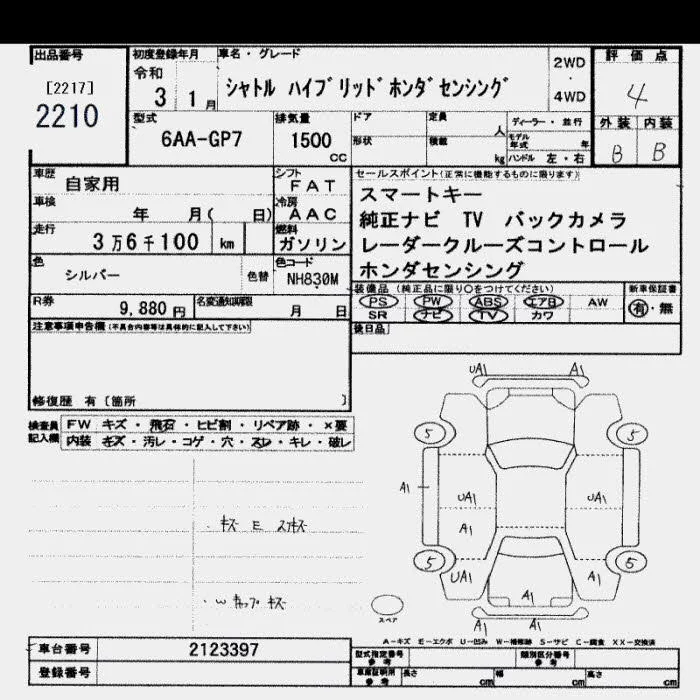 出品番号
[2217]
2210
初度登録年月
令和
3 1月
車名・グレード
シャトル ハイブリッドホンダセンシング
2WD
・
4WD
評価点
4
外装 内装
B B
型式
6AA-GP7
排気量
1500
CC
ドア
定員
人
形状
積載
kg
ディーラー・並行
モデル年式 年
ハンドル 左・右
車歴
自家用
シフト
FAT
車検
年 月( 日)
冷房
AAC
走行
3万6千100 km
燃料
ガソリン
色
シルバー
色替
色コード
NH830M
R券
9,880円
名変通知期限
月 日
セールスポイント(正常に機能するものに限ります)
スマートキー
純正ナビ TV バックカメラ
レーダークルーズコントロール
ホンダセンシング
装備品 (純正品に限り○をつけてください)
PS PW ABS エアB AW
SR ナビ TV カワ
新車保証書
有・無
後日品
注意事項申告欄(不具合内容等は具体的に記入して下さい)
修復歴 有〔箇所 〕
検査員記入欄
FW キズ・飛石・ヒビ割・リペア跡・×要
内装 キズ・汚レ・コゲ・穴・スレ・キレ・破レ
・キズ E スリキズ
UA1 A1
5 5
A1 UA1 UA1
A1
5 5
UA1 A1 A1
A1 A1
スペア
A-キズ E-エクボ U-凹み W-補修跡 S-サビ C-腐食 XX-交換済
車台番号
2123397
登録番号
型式指定番号
参考
類別区分番号
参考
車庫証明用
参考
長さ cm
幅 cm
高さ cm